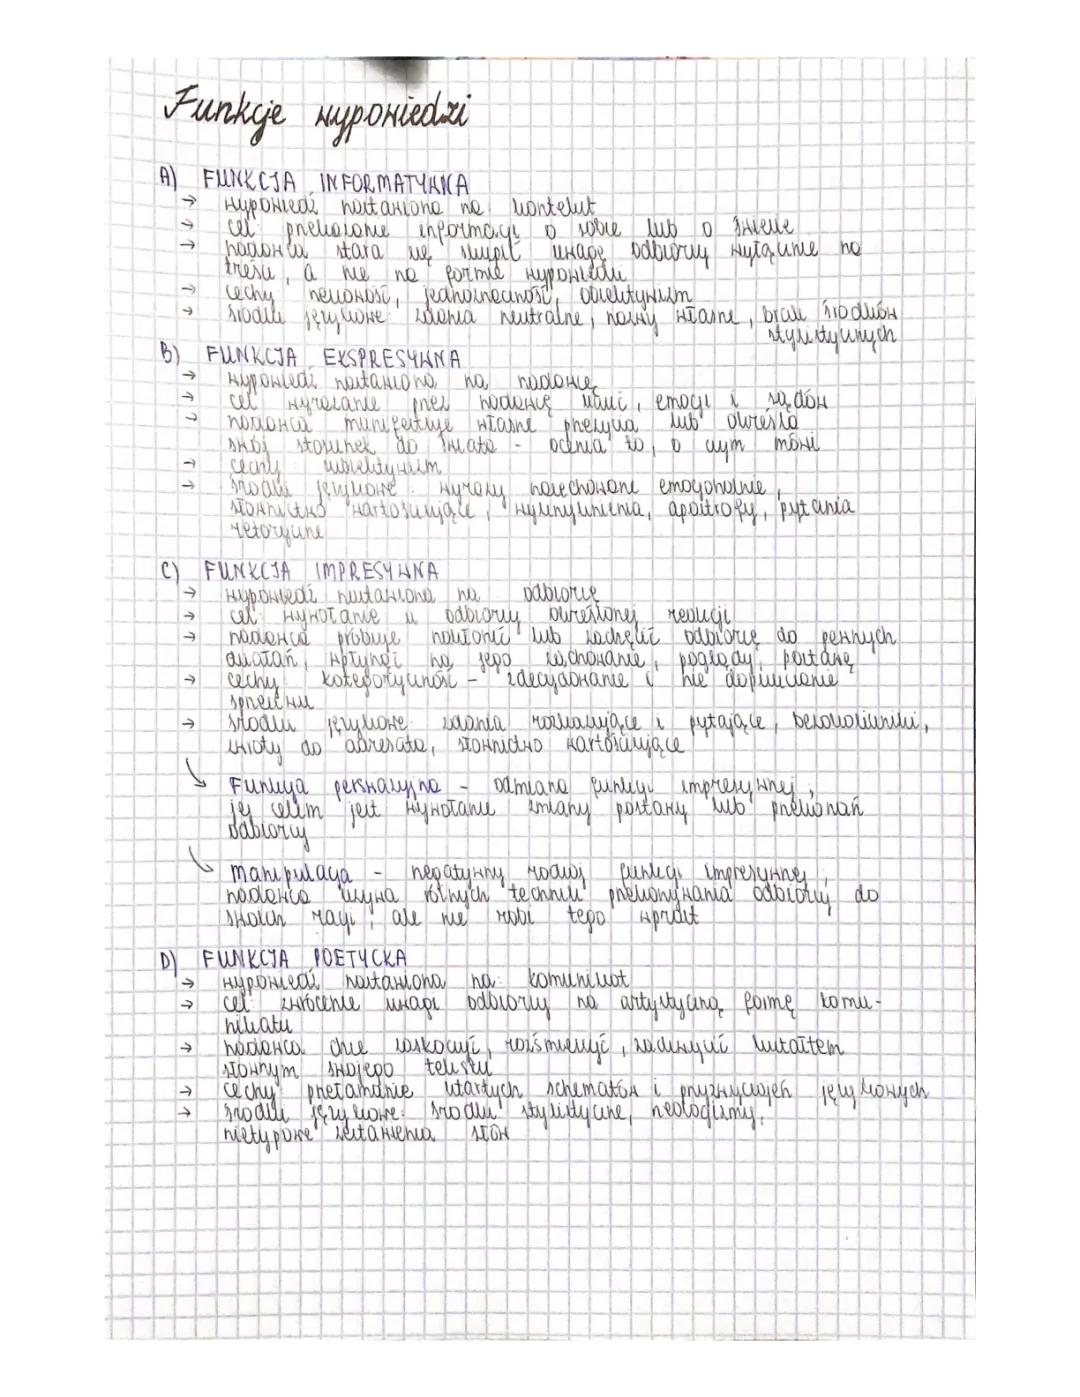 Funkcje wypowiedzi
A) FUNKCJA INFORMATYWNA
→ wypowiedź nastawiona na kontekst
→ cel: przekazanie informacji o sobie lub o świecie
→ nadawca stara się skupić uwagę odbiorcy wyłącznie na
treści, a nie na formie wypowiedzi
→ cechy: rzeczowość, jednoznaczność, obiektywizm
→ środki językowe: zdania neutralne, nazwy własne, brak środków
stylistycznych
B) FUNKCJA EKSPRESYWNA
→ wypowiedź nastawiona na nadawcę
→ cel: wyrażanie przez nadawcę uczuć, emocji i sądów
→ nadawca manifestuje własne przeżycia lub określa
swój stosunek do świata - ocenia to, o czym mówi
→ cechy: subiektywizm
→ środki językowe: wyrazy nacechowane emocjonalnie,
słownictwo wartościujące, wykrzyknienia, apostrofy, pytania
retoryczne
C) FUNKCJA IMPRESYWNA
→ wypowiedź nastawiona na odbiorcę
→ cel: wywołanie u odbiorcy określonej reakcji
→ nadawca próbuje nakłonić lub zachęcić odbiorcę do pewnych
działań, wpłynąć na jego zachowanie, poglądy, postawę
→ cechy: kategoryczność - zdecydowanie i nie dopuszczanie
sprzeciwu
→ środki językowe: zdania rozkazujące i pytające, bezokoliczniki,
zwroty do adresata, słownictwo wartościujące
↳ Funkcja perswazyjna - odmiana funkcji impresywnej,
jej celem jest wywołanie zmiany postawy lub przekonań
odbiorcy
↳ Manipulacja - negatywny rodzaj funkcji impresywnej,
nadawca używa różnych technik przekonywania odbiorcy do
swoich racji, ale nie robi tego wprost
D) FUNKCJA POETYCKA
→ wypowiedź nastawiona na: komunikat
→ cel: zwrócenie uwagi odbiorcy na artystyczną formę komu-
nikatu
→ nadawca chce zaskoczyć, rozśmieszyć, zadziwić kształtem
słownym swojego tekstu
→ cechy: przełamanie utartych schematów i przyzwyczajeń językowych
→ środki językowe: środki stylistyczne, neologizmy,
nietypowe zestawienia słów